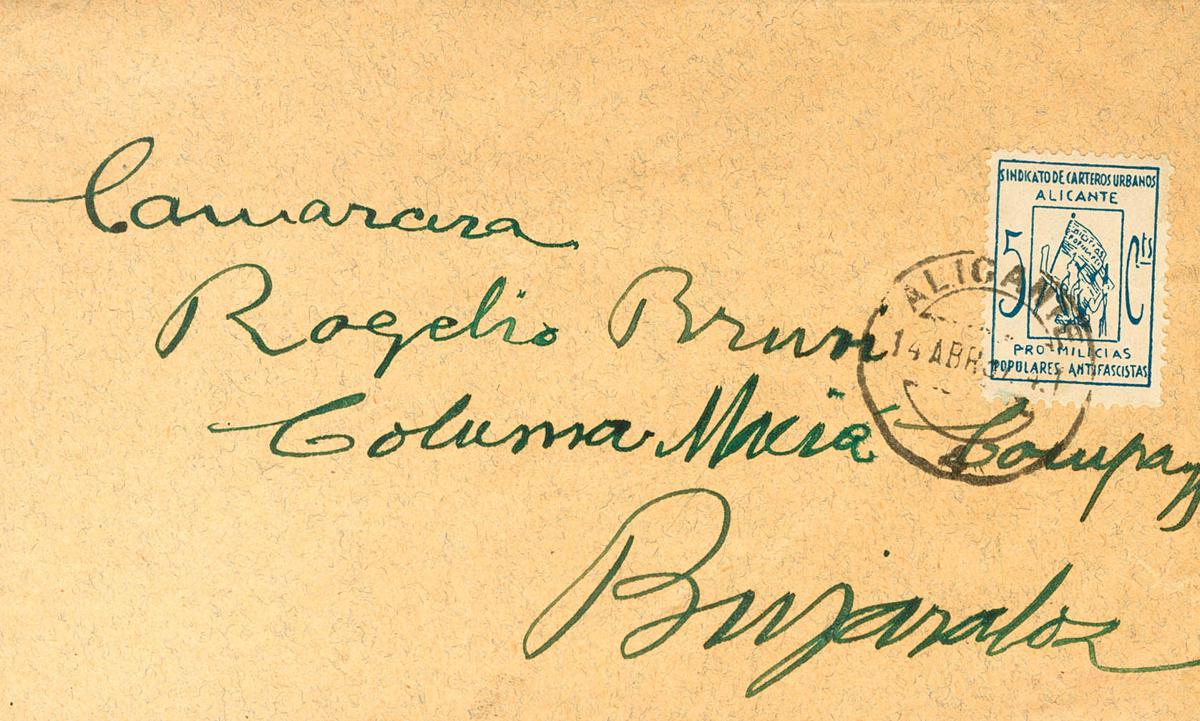 Camarara
Rogelio Bruni
Columna Macia Compay
Bujaraloz
SINDICATO DE CARTEROS URBANOS
ALICANTE
5 Cts
PRO-MILICIAS
POPULARES ANTIFASCISTAS
ALICANTE
14 ABR 37